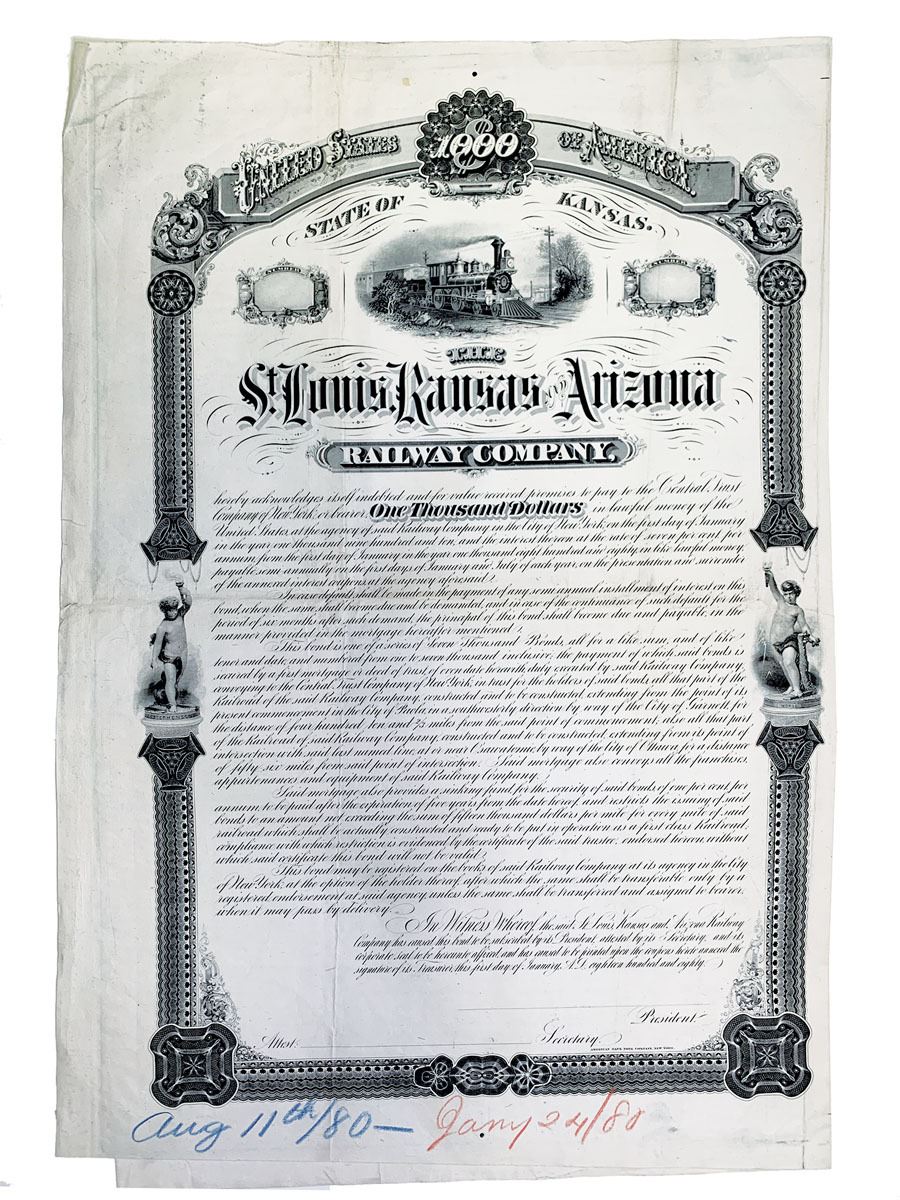 UNITED STATES $1000 OF AMERICA.
STATE OF KANSAS.
NUMBER NUMBER
THE
St. Louis, Kansas AND Arizona
RAILWAY COMPANY,
hereby acknowledges itself indebted and for value received promises to pay to the Central Trust
Company of New York, or bearer, One Thousand Dollars in lawful money of the
United States, at the agency of said Railway Company in the City of New York, on the first day of January
in the year one thousand nine hundred and ten, and the interest thereon at the rate of seven per cent. per
annum, from the first day of January in the year one thousand eight hundred and eighty, in like lawful money,
payable semi-annually on the first days of January and July of each year, on the presentation and surrender
of the annexed interest coupons at the agency aforesaid.
In case default shall be made in the payment of any semi annual installment of interest on this
bond, when the same shall become due and be demanded, and in case of the continuance of such default for the
period of six months after such demand, the principal of this bond shall become due and payable, in the
manner provided in the mortgage hereafter mentioned.
This bond is one of a series of Seven Thousand Bonds, all for a like sum, and of like
tenor and date, and numbered from one to seven thousand inclusive, the payment of which said bonds is
secured by a first mortgage or deed of trust of even date herewith, duly executed by said Railway Company,
conveying to the Central Trust Company of New York, in trust for the holders of said bonds, all that part of the
Railroad of the said Railway Company, constructed and to be constructed, extending from the point of its
present commencement in the City of Paola, in a southwesterly direction by way of the City of Garnett, for
the distance of four hundred ten and ⅗ miles from the said point of commencement, also all that part
of the Railroad of said Railway Company, constructed and to be constructed, extending from its point of
intersection with said last named line, at or near Osawatomie, by way of the City of Ottawa for a distance
of fifty six miles from said point of intersection. Said mortgage also conveys all the franchises,
appurtenances and equipment of said Railway Company.
Said mortgage also provides a sinking fund for the security of said bonds of one per cent. per
annum, to be paid after the expiration of five years from the date hereof, and restricts the issuing of said
bonds to an amount not exceeding the sum of fifteen thousand dollars per mile for every mile of said
railroad which shall be actually constructed and ready to be put in operation as a first class Railroad,
compliance with which restriction is evidenced by the certificate of the said trustee, endorsed hereon, without
which said certificate this bond will not be valid.
This bond may be registered on the books of said Railway Company at its agency in the City
of New York, at the option of the holder thereof, after which the same shall be transferable only by a
registered endorsement at said agency, unless the same shall be transferred and assigned to bearer,
when it may pass by delivery.
In Witness Whereof, the said St. Louis, Kansas and Arizona Railway
Company has caused this bond to be subscribed by its President, attested by its Secretary, and its
corporate seal to be hereunto affixed, and has caused to be printed upon the coupons hereto annexed the
signature of its Treasurer, this first day of January, A.D. eighteen hundred and eighty.
President.
Attest: Secretary.
AMERICAN BANK NOTE COMPANY, NEW YORK.
Aug 11th/80— Jany 24/80